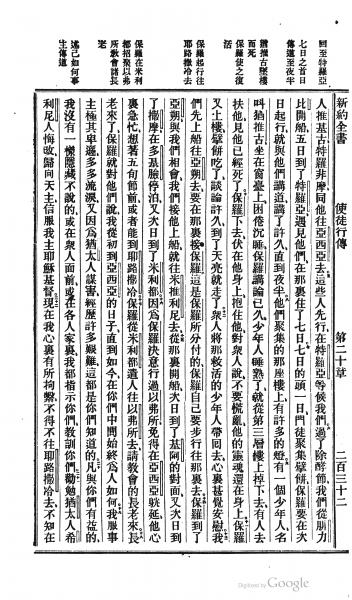 新約全書　使徒行傳　第二十章　二百三十二
回至特羅亞
七日之首日
傳道至夜半
猶推古墜樓
而死
保羅使之復
活
保羅起行往
耶路撒冷去
保羅在米利
都招聚以弗
所教會諸長
老
述己如何事
主傳道
人推基古特羅非摩同他往亞西亞去這些人先行在特羅亞等候我們過了除酵節我們從腓立
比開船五日到了特羅亞遇見他們在那裏住了七日七日的頭一日門徒聚集擘餅保羅要在次
日起行就與他們講道講了許久直到夜半他們聚集的那座樓上有許多的燈有一個少年人名
叫猶推古坐在窗臺上困倦沉睡保羅講論已久少年人睡熟了就從第三層樓上掉下去有人去
扶他見他已經死了保羅下去伏在他身上抱住他對衆人說不要慌亂他的靈魂還在身上保羅
又上樓擘餅吃了談論許久到了天亮就走了衆人將那救活的少年人帶回去心裏甚覺安慰我
們先上船往亞朔去要在那裏接保羅這是保羅所分付的保羅自己要步行往那裏去保羅到了
亞朔與我們相會我們接他上船就往米推利尼去從那裏開船次日到了基阿的對面又次日到
了撒摩在多基臉停泊又次日到了米利都因爲保羅決意行過以弗所免得在亞西亞躭延他心
裏急忙想著五旬節前或者能到耶路撒冷保羅從米利都遣人往以弗所去請教會的長老來長
老來了保羅就對他們說我從初到亞西亞的日子直到如今在你們中間始終爲人如何我服事
主極其卑遜多多流淚又因爲猶太人謀害經歷許多艱難這都是你們知道的凡與你們有益的
我沒有一樣隱藏不說的或在衆人面前或在各人家裏我都指示你們教訓你們勸勉猶太人希
利尼人悔改歸向天主信服我主耶穌基督現在我心裏有所拘繫不得不往耶路撒冷去不知在
Digitized by Google